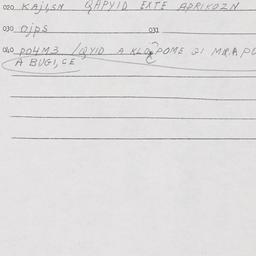 020 KAJI,SN QAPYID EXTE APRIKOZN
030 OJPS 031
040 PO4M3 /QYID A KLO POME 21
A BUGI,CE